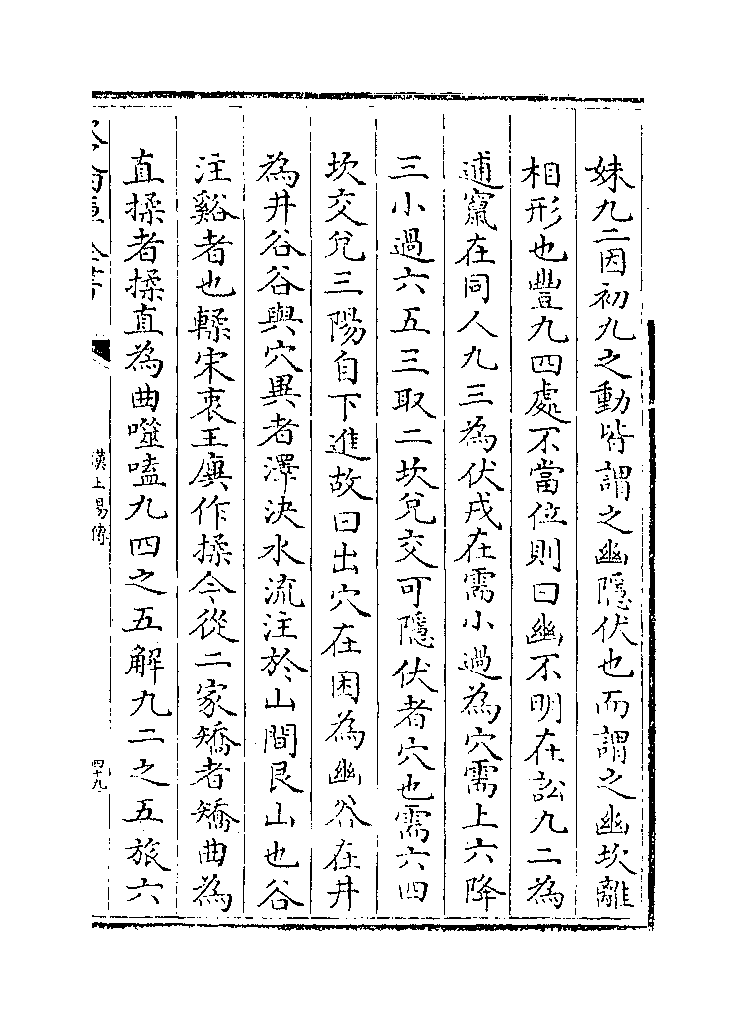 妹九二因初九之動皆謂之幽隱伏也而謂之幽坎離
相形也豐九四處不當位則曰幽不明在訟九二為
逋竄在同人九三為伏戎在需小過為穴需上六降
三小過六五三取二坎兌交可隱伏者穴也需六四
坎交兌三陽自下進故曰出穴在困為幽谷在井
為井谷谷與穴異者澤決水流注於山間艮山也谷
注谿者也輮宋衷王廙作揉今從二家矯者矯曲為
直揉者揉直為曲噬嗑九四之五解九二之五旅六
漢上易傳
四十九